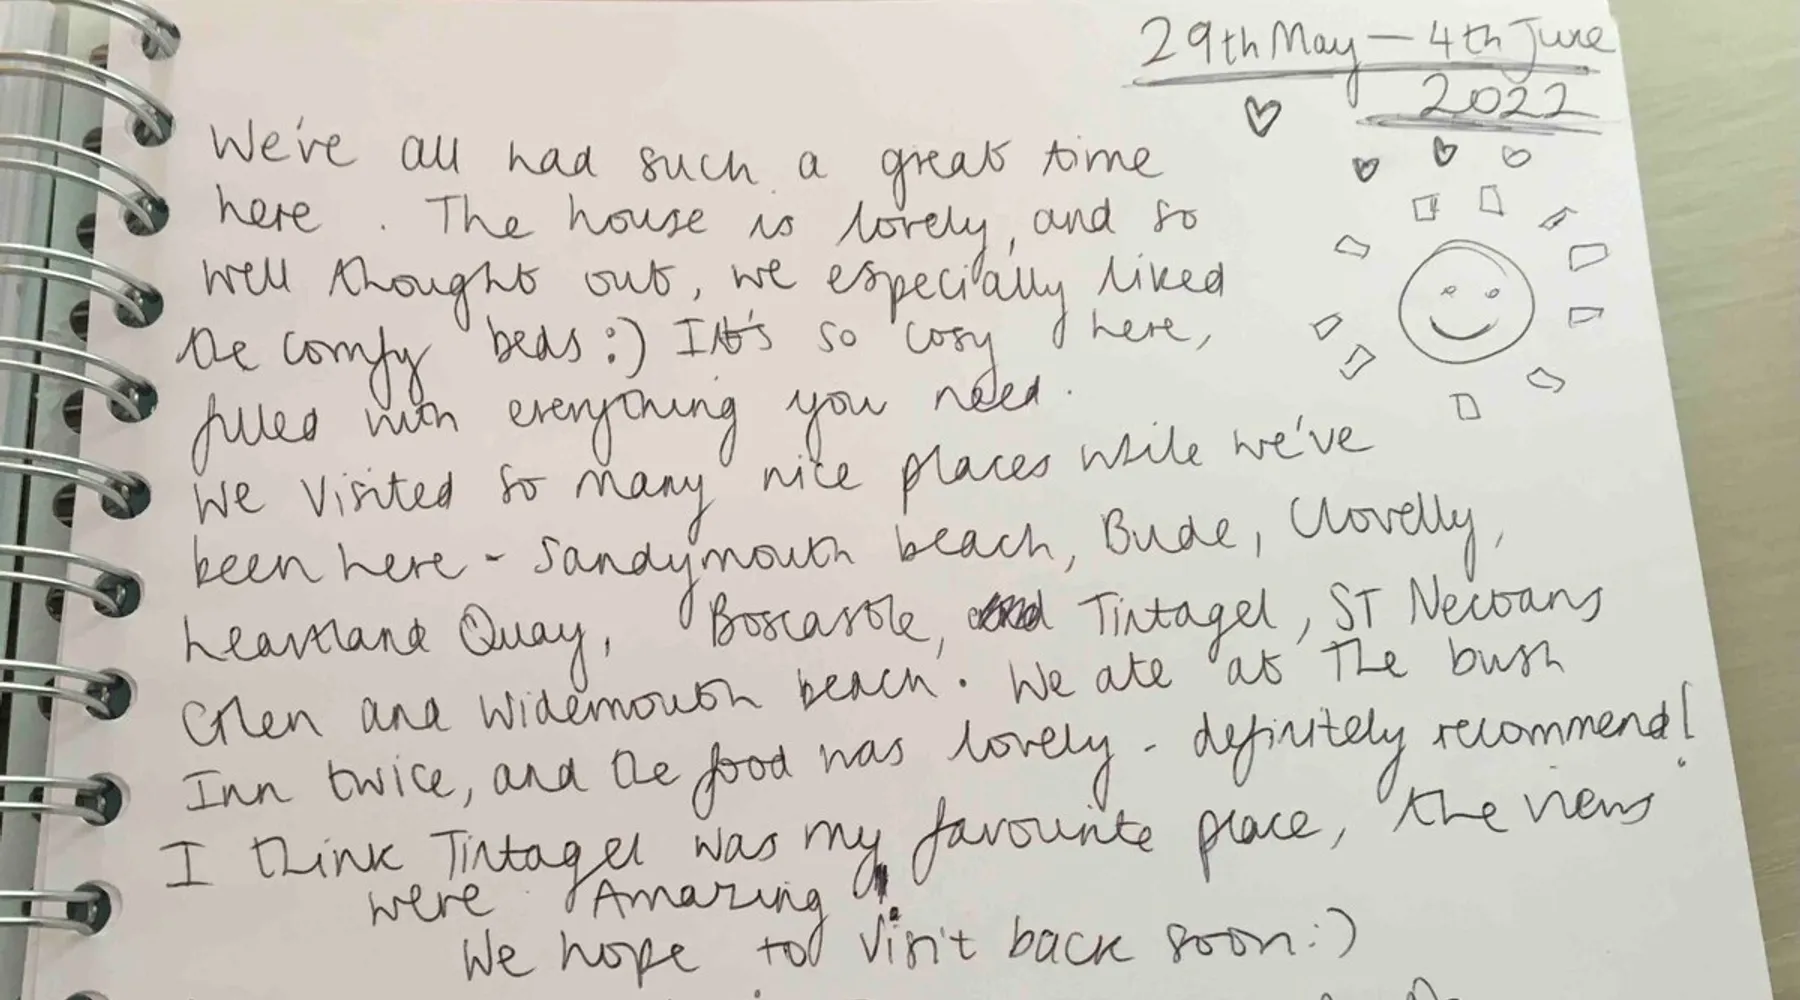 29th May – 4th June
2022
We've all had such a great time
here. The house is lovely, and so
well thought out, we especially liked
the comfy beds :) It's so cosy here,
filled with everything you need.
We visited so many nice places while we've
been here - Sandymouth beach, Bude, Clovelly,
heartland Quay, Boscastle, and Tintagel, ST Nectans
Glen and Widemouth beach. We ate at The bush
Inn twice, and the food was lovely - definitely recommend!
I think Tintagel was my favourite place, the views
were Amazing!
We hope to visit back soon :)